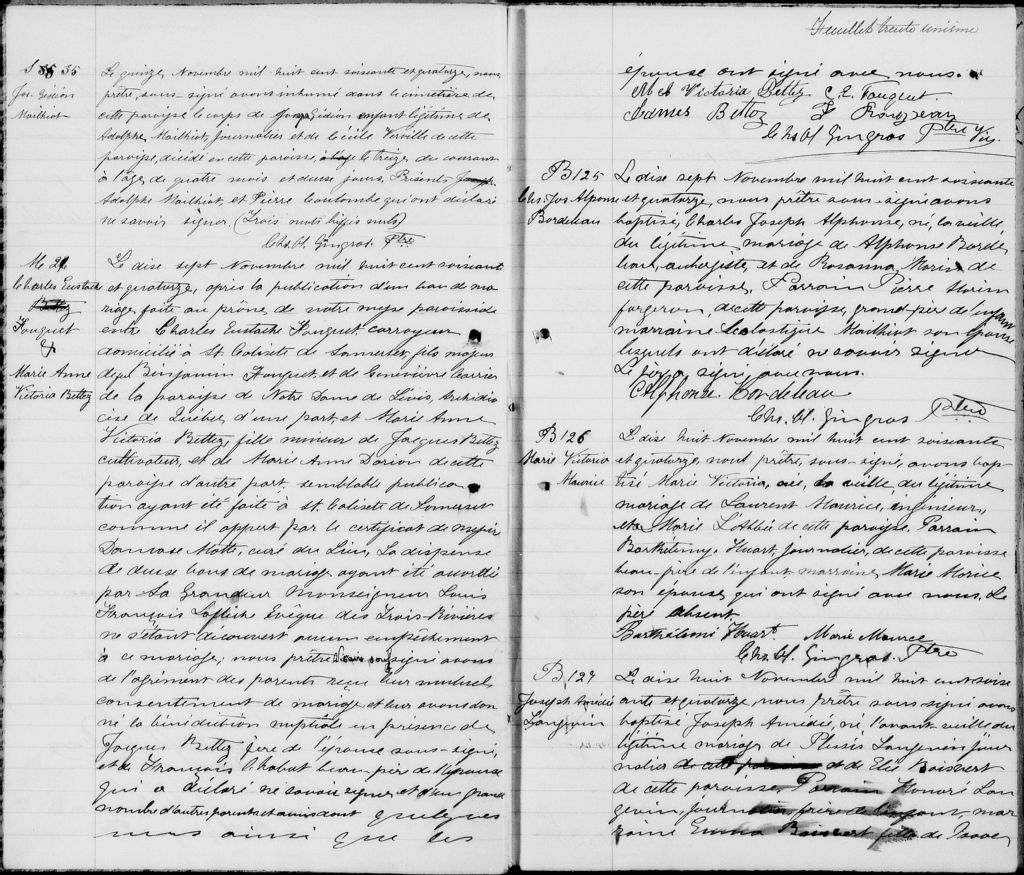 S 35
Jos. Gédéon
Mailhiot
Le quinze Novembre mil huit cent soixante et quatorze, nous
prêtre, sous-signé avons inhumé dans le cimetière de
cette paroisse le corps de Gédéon enfant légitime de
Adolphe Mailhiot, Journalier et de Cécile Verville de cette
paroisse, décédé en cette paroisse, le treize, du courant
à l'âge de quatre mois et douze jours. Présents
Adolphe Mailhiot, et Pierre Coulombe qui ont déclaré
ne savoir signer (Trois mots biffés nuls)
Chs. H. Gingras Ptre
M. 21
Charles Eustache
Bettez
Fouquet
&
Marie Anne
Victoria Bettez
Le dix sept Novembre mil huit cent soixante
et quatorze, après la publication d'un ban de ma-
riage, faite au prône, de notre messe paroissiale
entre Charles Eustache Fouquet corroyeur
domicilié à St. Calixte de Somerset, fils majeur
de feu Benjamin Fouquet, et de Geneviève Carrier
de la paroisse de Notre Dame de Lévis, Archidio-
cèse de Québec, d'une part, et Marie Anne
Victoria Bettez, fille mineure de Jacques Bettez
cultivateur, et de Marie Anne Dorion de cette
paroisse d'autre part, semblable publica-
tion ayant été faite à St. Calixte de Somerset
comme il appert par le certificat de messire
curé du lieu, La dispense
de deux bans de mariage ayant été accordée
par Sa Grandeur Monseigneur Louis
François Laflèche Évêque des Trois-Rivières
ne s'étant découvert aucun empêchement
à ce mariage; nous prêtre Vicaire soussigné avons
de l'agrément des parents reçu leur mutuel
consentement de mariage et leur avons don-
né la bénédiction nuptiale en présence de
Jacques Bettez père de l'épouse sous-signé,
et de François Chabot beau-père de l'épouse
qui a déclaré ne savoir signer et d'un grand
nombre d'autres parents et amis dont quelques
uns ainsi que les
Feuillet trente unième
épouse ont signé avec nous.
M. A. Victoria Bettez C. E. Fouquet
James Bettez F. Rousseau
Chs. H. Gingras Ptre Vic.
B 125
Chs. Jos Alphonse
Bordeleau
Le dix sept Novembre mil huit cent soixante
et quatorze, nous prêtre sous-signé avons
baptisé, Charles Joseph Alphonse, né, la veille,
du légitime mariage de Alphonse Borde-
leau, aubergiste, et de Rosanna Morin de
cette paroisse, Parrain Pierre Morin
forgeron, de cette paroisse, grand-père de l'enfant
marraine Scolastique Mailhiot son épouse
lesquels ont déclaré ne savoir signer
Le père a signé avec nous.
Alphonse Bordeleau
Chs. H. Gingras Ptre
B 126
Marie Victoria
Maurice
Le dix huit Novembre mil huit cent soixante
et quatorze, nous prêtre, sous-signé, avons bap-
tisé Marie Victoria, née, la veille, du légitime
mariage de Laurent Maurice, ingénieur,
et Marie L'Abbé de cette paroisse. Parrain
Barthélemy Huart, journalier, de cette paroisse
beau-père de l'enfant marraine Marie Morice
son épouse, qui ont signé avec nous. Le
père absent
Barthélemi Huart Marie Maurce
Chs. H. Gingras Ptre
B. 127
Joseph Amédée
Langevin
Le dix huit Novembre mil huit cent soix-
ante et quatorze, nous prêtre sous-signé avons
baptisé Joseph Amédée, né, l'avant-veille du
légitime mariage de Plusis Langevin jour-
nalier de cette paroisse et de Boisvert
de cette paroisse. Parrain Honoré Lan-
gevin, journalier frère de l'enfant, mar-
raine Emma Boisvert fille de